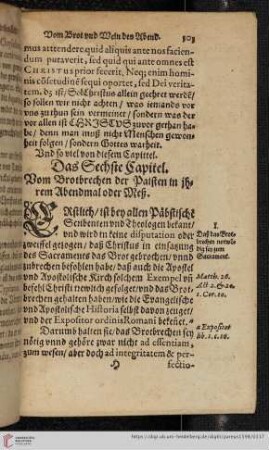 Vom Brot vnd Wein des Abend. 103
mus attendere quid aliquis ante nos facien-
dum putauerit, sed quid qui ante omnes est
CHRISTVS prior fecerit, Neq; enim homi-
nis cōsetudinē sequi oportet, sed Dei verita-
tem. dz ist / So Christus allein gehöret werdē /
so sollen wir nicht achten / was jemands vor
vns zuthun sein vermeinet / sondern was der
vor allen ist CHRISTVS zuvor gethan ha-
be / denn man muß nicht Menschen gewon-
heit folgen / sondern Gottes warheit.
Vnd so viel von diesem Capittel.
Das Sechste Capitel.
Vom Brotbrechen der Papisten in jh-
rem Abendmal oder Meß.
ERstlich / ist bey allen Päbstische
Scribenten vnd Theologen bekant /
vnd wird in keine disputation oder
zweiffel gezogen / daß Christus in einsatzung
des Sacraments das Brot gebrochen / vnnd
zubrechen befohlen habe / daß auch die Apostel
vnd Apostolische Kirch solchem Exempel vñ
befehl Christi trewlich gefolget / vnd das Brot-
brechen gehalten haben / wie die Evangelische
vnd Apostolische Historia selbst davon zeuget /
vnd der Expositor ordinis Romani bekeñet.
Darumb halten sie / das Brotbrechen sey
nötig vnnd gehöre zwar nicht ad essentiam,
zum wesen / aber doch ad integritatem & per-
H fectio-
1.
Daß das Brot-
brechen notwē-
dig sey zum
Sacrament.
Matth. 26.
Act 2. & 20.
1. Cor. 10.
a Expositor